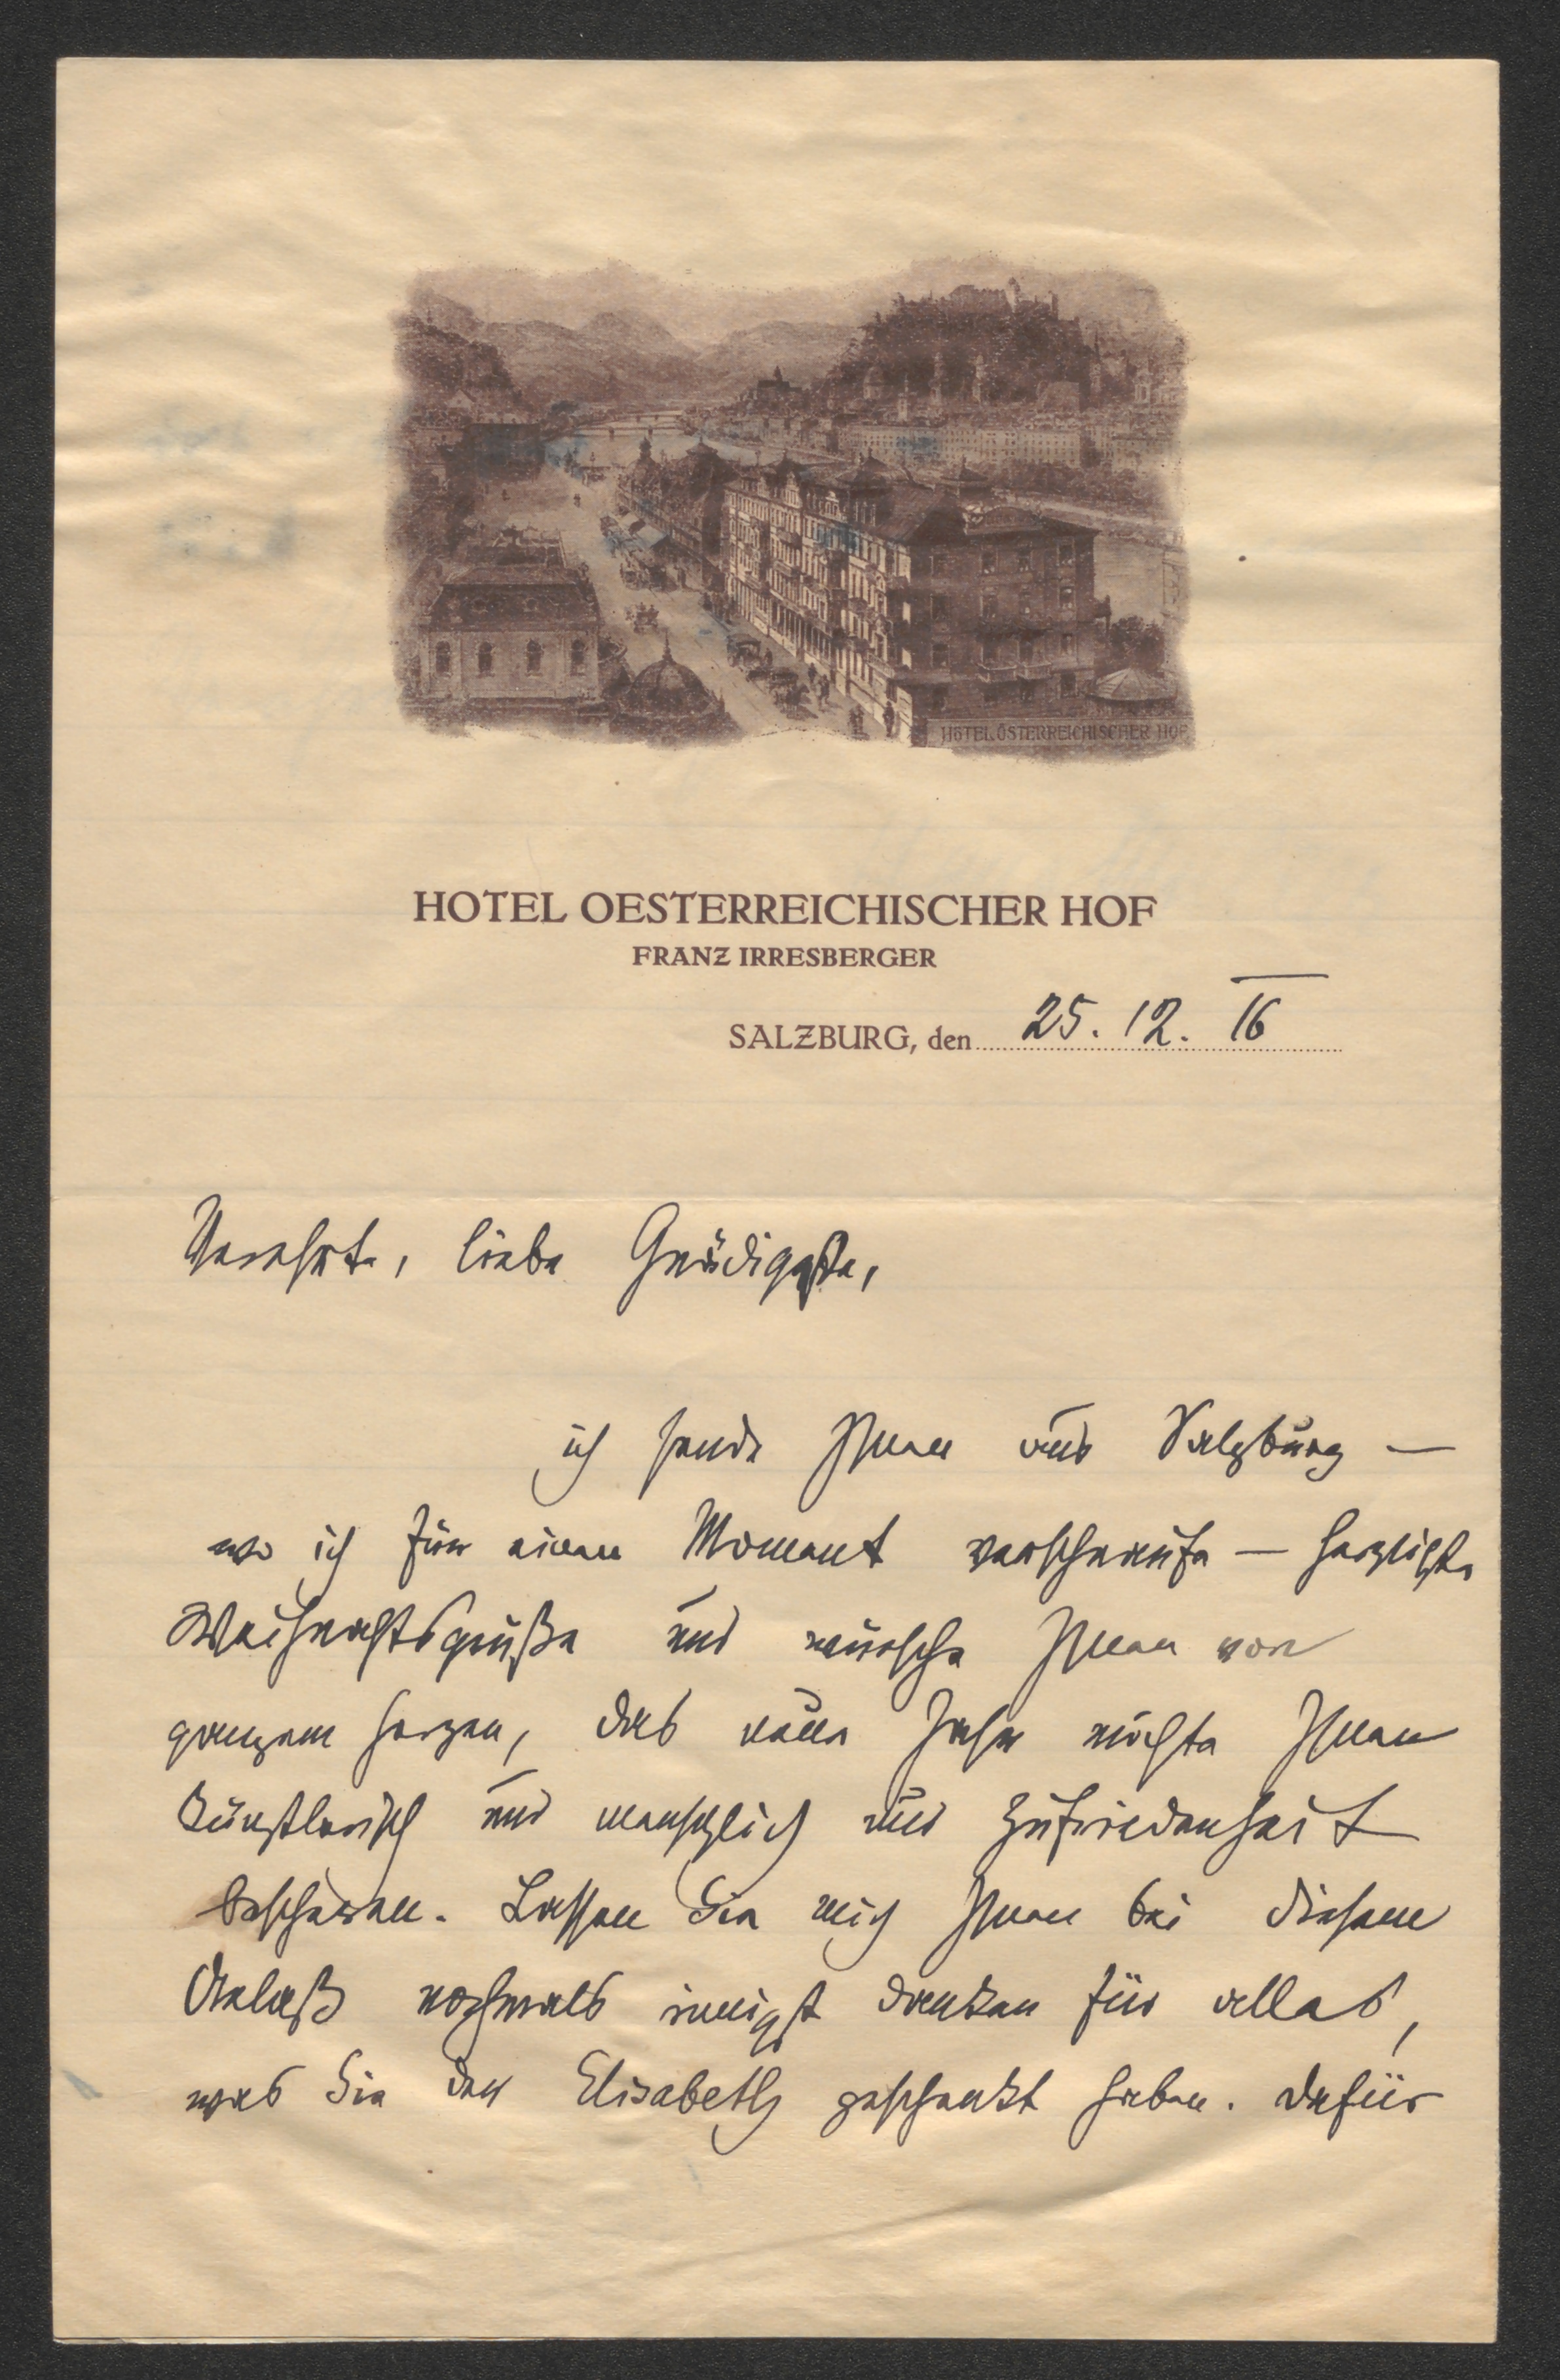 HOTEL ÖSTERREICHISCHER HOF
HOTEL OESTERREICHISCHER HOF
FRANZ IRRESBERGER
SALZBURG, den 25. 12. 16
Verehrte, liebe Gnädigste,
ich sende Ihnen aus Salzburg —
wo ich für einen Moment verschnaufe — herzlichste
Weihnachtsgrüße und wünsche Ihnen von
ganzem Herzen, das neue Jahr möchte Ihnen
künstlerisch und menschlich nur Zufriedenheit
bescheren. Lassen Sie mich Ihnen bei diesem
Anlaß nochmals innigst danken für alles,
was Sie der Elisabeth geschenkt haben. Dafür